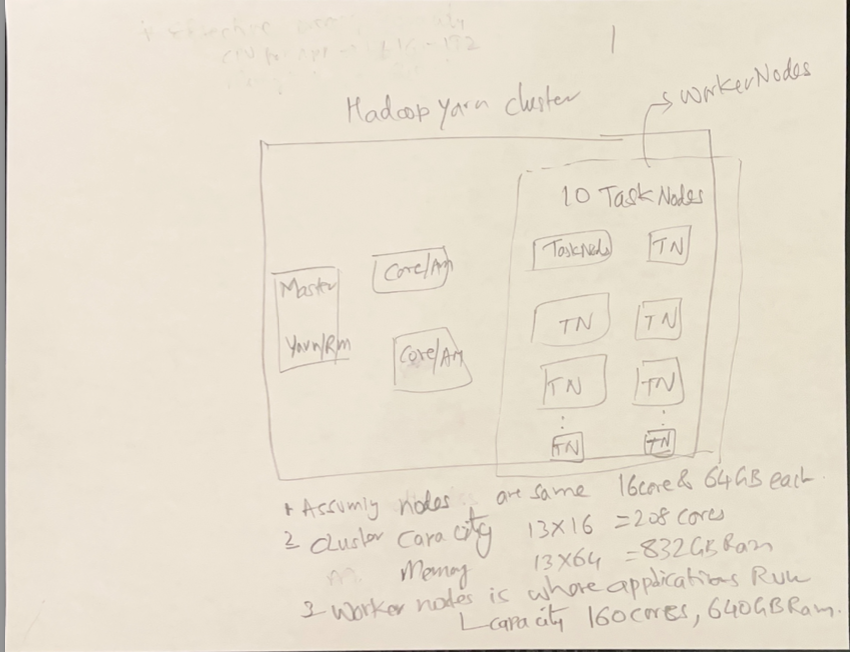 1
Hadoop Yarn cluster
Worker Nodes
10 Task Nodes
TaskNode
TN
Core/Am
Master
Yarn/Rm
TN
TN
Core/Am
TN
TN
TN
TN
1 Assumly nodes are same 16core & 64GB each.
2 cluster Capacity 13X16 = 208 cores
Memory 13X64 = 832GB Ram
3 Worker nodes is where applications Run
capacity 160cores, 640GB Ram.